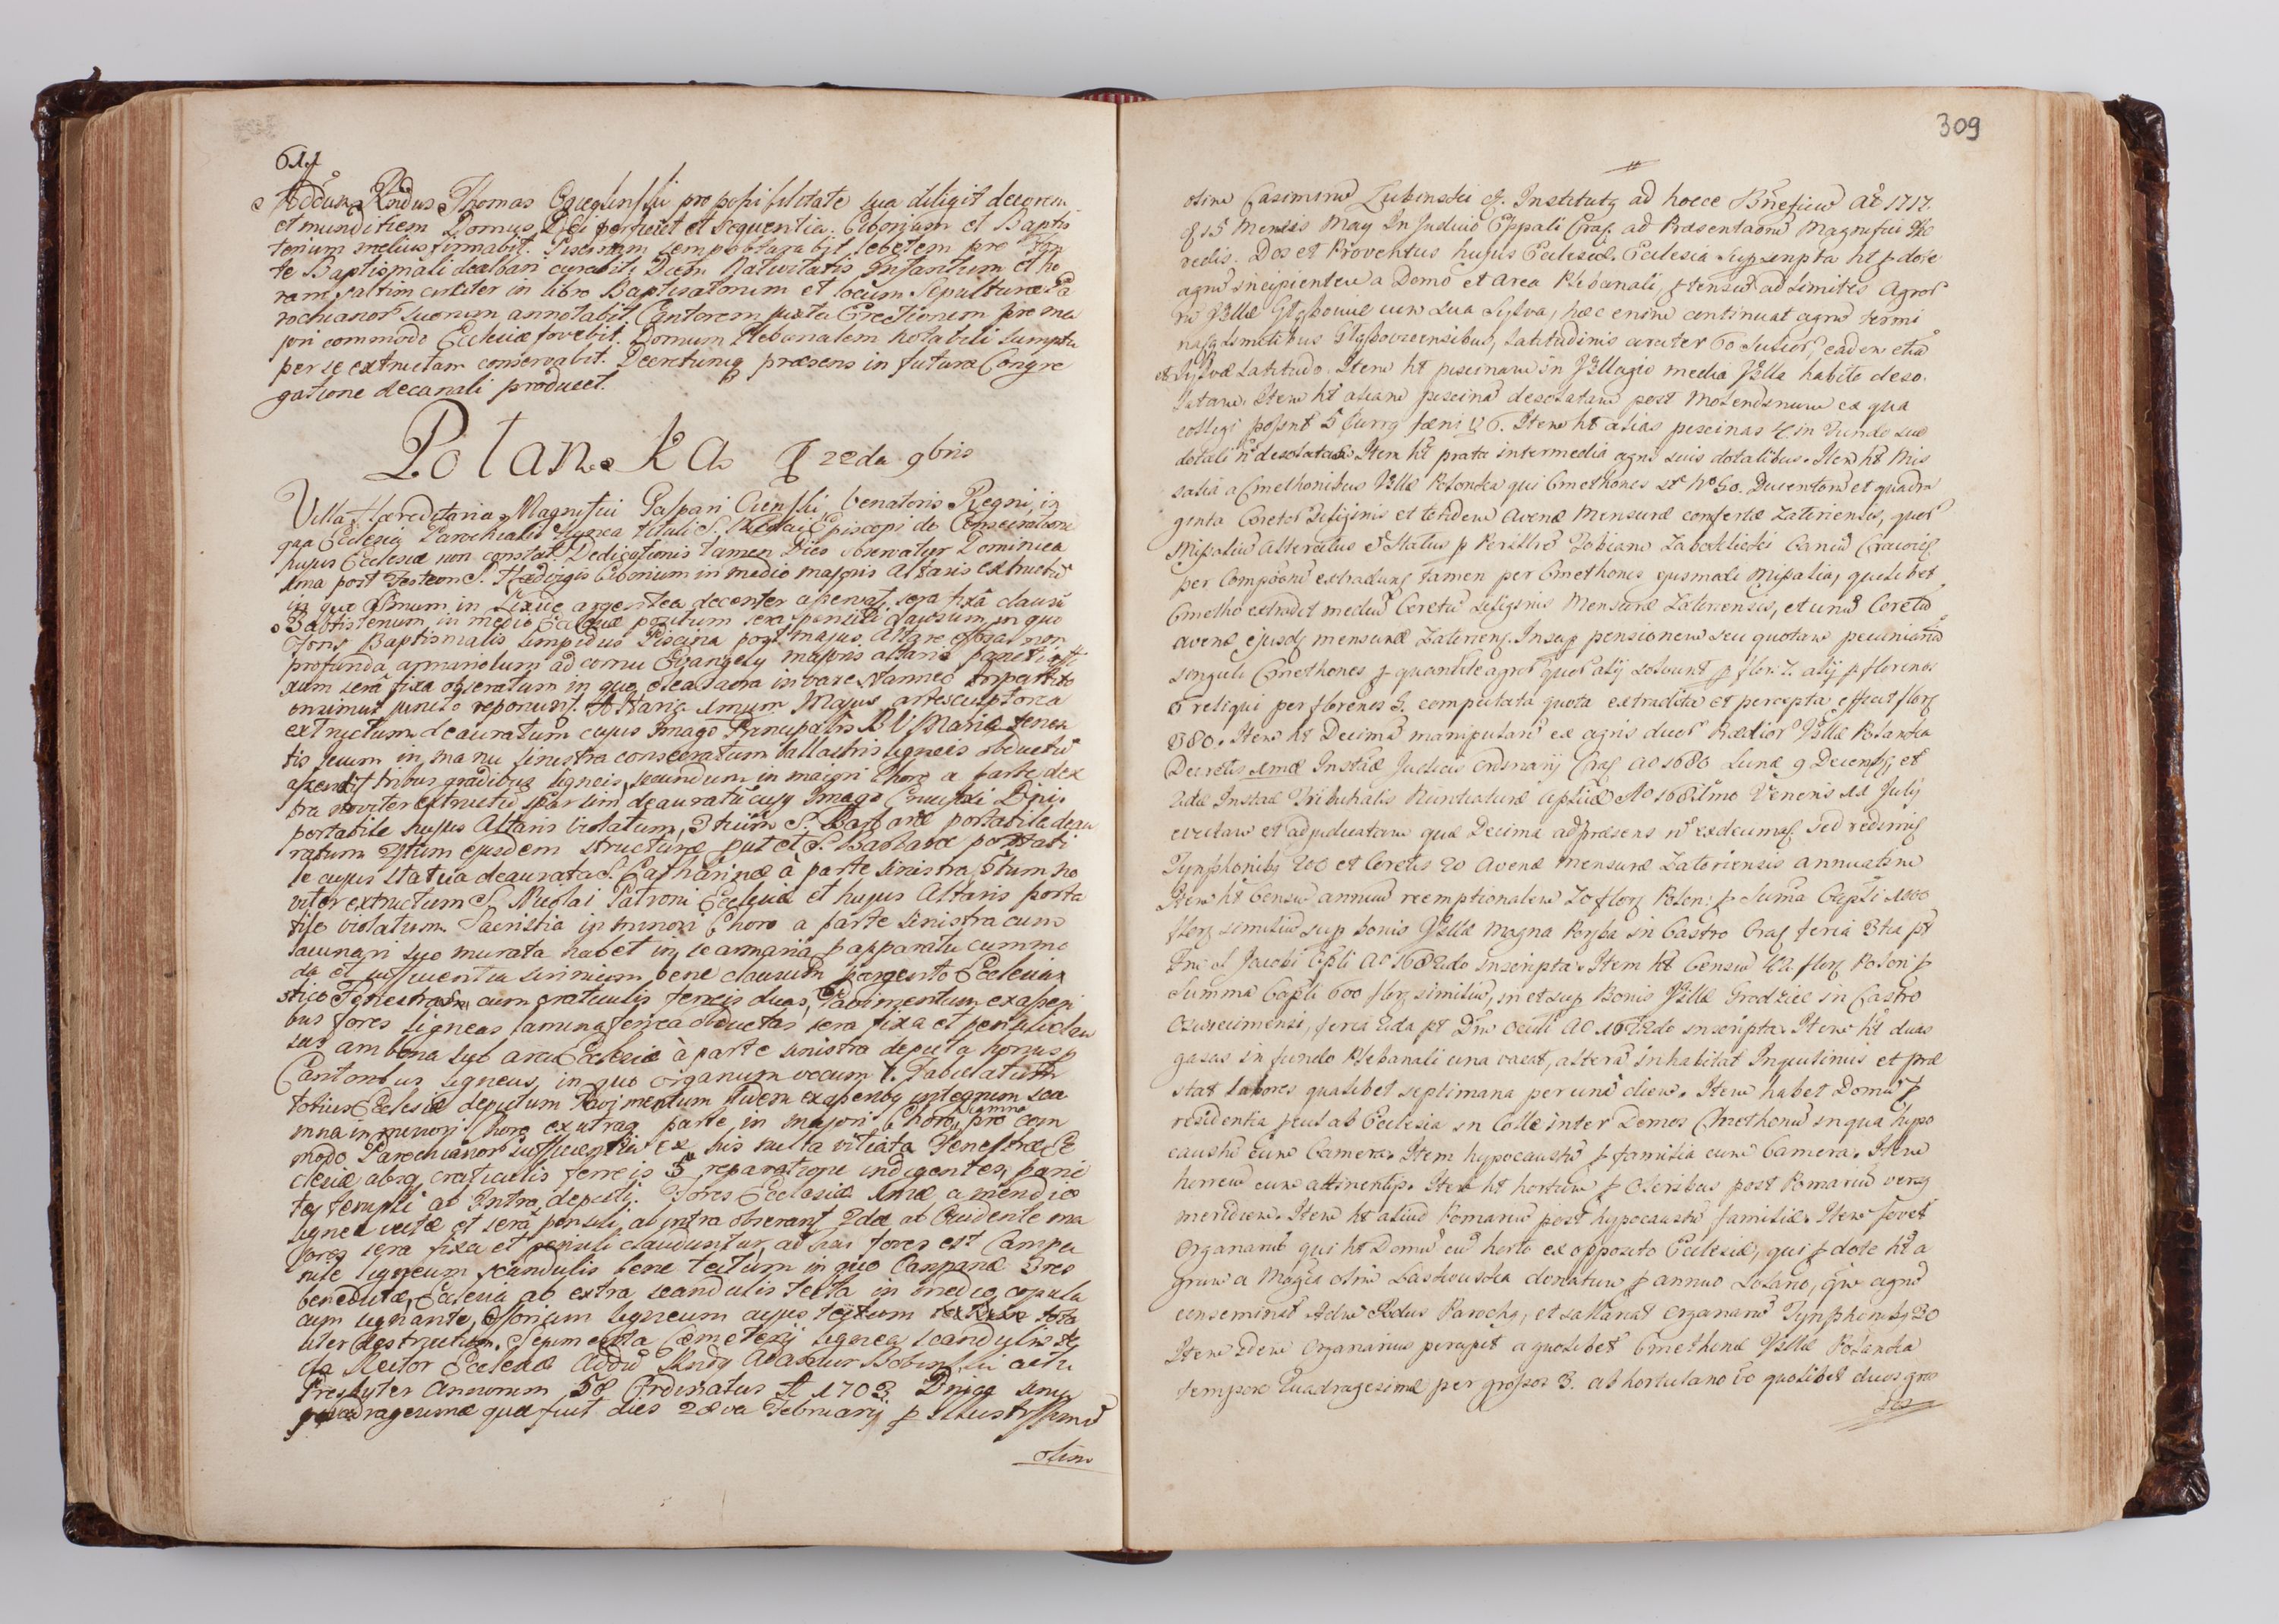 611
Addum Rndus Thomas pro possibilitate sua diligit decorem
et munditiem Domus Dei perficiet et sequentia. Ciborium et Baptis
terium melius firmabit. Piscinam semper obturabit lebetem pro Fon
te Baptismali dealbari curabit, Diem Nativitatis Infantium et ho
ram saltim circiter in libro Baptisatorum et locum Sepulturæ Pa
rochianor suorum annotabit. Cantorem juxta Erectionem pro ma
jori commodo Ecclesiæ fovebit. Domum Plebanalem notabili sumptu
per se extructam conservabit. Decretumq præsens in futura Congre
gatione decanali producet.
Polanka 22da 9bris
Villa Hæreditaria Magnifici Gaspari Cienski Venatoris Regni, in
qua Ecclesia Parochialis lignea tituli S. Nicolai Episcopi de Consecratione
hujus Ecclesiæ non constat Dedicationis tamen Dies observatur Dominica
1ma post Festum S. Hedvigis Ciborium in medio majoris Altaris extructū
in quo in Pixide argentea decenter asservat. sera fixa clausū
Babtisterium in medio Ecclesiæ positum sera pensili clausum in quo
Fons Baptismalis limpidus Piscina post majus Altare non
profunda armariolum ad cornu Evangely majoris altaris parieti
xum serâ fixa obseratum in quo olea sacra in vase stanneo tripartito
Altaria 1mum Majus arte sculptorea
extructum deauratum cujus Imago Principalis B V Mariæ tenen
tis Jesum in manu sinistra consecratum ballastris ligneis obductū
tribus gradibus ligneis, secundum in majori Choro a parte dex
tra noviter extructū sparsim deauratū cujq Imago Crucifixi Dni,
portabile hujus Altaris violatum, 3tium S. Barbaræ portabile deau
ratum 4tum ejusdem structuræ S. Barbaræ portati
le cujus Statua deaurata S. Catharinæ à parte sinistra, 5tum no
viter extructum S. Nicolai Patroni Ecclesiæ et hujus Altaris porta
tile violatum. Sacristia in minori Choro a parte sinistra cum
lacunari suo murata habet in se armaria p apparatu cummo
da et sufficientia scrinium bene clausum p argento Ecclesia
stico Fenestras cum craticulis ferreis duas, Pavimentum ex asseri
bus fores ligneas lamina ferrea obductas sera fixa et pensili clau
sas ambona sub arcu Ecclesiæ à parte sinistra depicta Chorus p
Cantoribus ligneus, in quo organum vocum 8. Tabulatum
totius Ecclesiæ depictum Pavimentum ibidem ex asseribq integrum Sca
mna in minori Choro ex utraq parte, in majori Choro Scamna pro com
modo Parochianor sufficientia ex his nulla vitiata Fenestræ Ec
clesiæ absq craticulis ferreis 5 reparatione indigentes, parie
tes templi ab Intra depicti. Fores Ecclesiæ 1mæ a meridie
lignea vecte et serâ pensili ab intra obserant 2dæ ab Occidente ma
jores sera fixa et pensili clauduntur, ad has fores est Campa
nile ligneum scandulis bene tectum in quo Campanæ 3res
benedictæ, Ecclesia ab extra scandulis tecta in medio copula
cum signante, Ossorium ligneum cujus tectum tota
liter destructum. Sepimenta Cœmeterij lignea scandulis te
cta Rector Ecclesiæ Addū Rndq actu
Presbyter annorum 58 Ordinatus A 1703 Dnica 1ma
quadragesimæ quæ fuit dies 28va Februarij p Illustrissimū
olim
309
olim Casimirū Lubinski Institutq ad hocce Bneficiū Ao 1717.
15 Mensis May In Judicio Eppali Crac. ad Præsentaonē Magnifici
Dos et Proventus hujus Ecclesiæ. Ecclesia supscripta ht p dote
agrū incipientem a Domo et Area Plebanali, ptensū ad Limites Agror
Villæ cum sua Sylva, hæc enim continuat agrū termi
Limitibus, Latitudinis circiter 60 eadem etiā
et Sylvæ Latitudo. Item ht piscinam in Villagio media Villa habito deso
latam. Item ht aliam piscinā desolatam post Molendinum ex qua
colligi possnt 5 Currq fæni v 6. Item ht alias piscinas 4. in Fundo suo
dotali desolatas Item ht prata intermedia agris suis dotalibus. Item ht Mis
salia a Cmethonibus Villæ Polonka qui Cmethones st No 60. Ducentorū et quadra
ginta Coretor siliginis et totidem avenæ Mensuræ confertæ Zatoriensis, quor
Missaliū
per extradunt tamen per Cmethones ejusmodi Missalia, quilibet
Cmetho extradet mediū Coretū siliginis Mensuræ Zatoriensis, et unū Coretū
avenæ ejusdq mensuræ Zatorienq. Insup pensionem seu quotam pecuniariā
singuli Cmethones p quantitate agror quor alij solvunt p flor. 7. alij p florenos
6 reliqui per florenos 3. computata quota extradita et percepta efficit florq
380. Item ht Decimā manipularē ex agris duor Prædior Villæ Polanka
Decretis 1mæ Instæ Judicii Ordinarij Crac Ao 1680 Lunæ 9 et
2dæ Instæ Tribunalis Nuntiaturæ Aplicæ Ao Veneris 11 July
evictam et adjudicatam quæ Decima ad præsens sed
Tynphonibq 200 et Coretis 20 Avenæ mensuræ Zatoriensis annuatim
Item ht Censū annuū reemptionalem 70 florq Polon: p Suma Capli 1000
florq similiū sup bonis Villæ magna Poręba in Castro Crac feria 3tia pt
S. Jacobi Apli Ao inscripta. Item ht Censū 42 florq Polon: p
Summa Capli 600 florq similiū, in et sup Bonis Villæ Grodziec in Castro
feria 2da pt Dnm Oculi Ao inscripta. Item ht duas
gasas in fundo Plebanali una vacat, alterā inhabitat Inquilinus et præ
stat labores qualibet septimana per unū diem. Item habet Domū p
residentia pcul ab Ecclesia in Colle inter Domos Cmethonū in qua hypo
caustū cum Camera. Item hypocaustū p familia cum Camera. Item
horreū cum attinentijs. Item ht hortum p oleribus post Pomariū versq
meridiem. Item ht aliud Pomariū post hypocaustū familiæ. Item fovet
Organariū qui ht Domū cū horto ex opposito Ecclesiæ, qui p dote ht a
grum a Magca olim Laskouska donatum p annuo solario, agrū
conseminat Adm Rdus Parochq, et sallariat organariū Tynphonibq 30
Item idem Organarius percipit a quolibet Cmethone Villæ Polanka
tempore Quadragesimæ per grossos 3. ab hortulano vo quolibet duos gros
sos